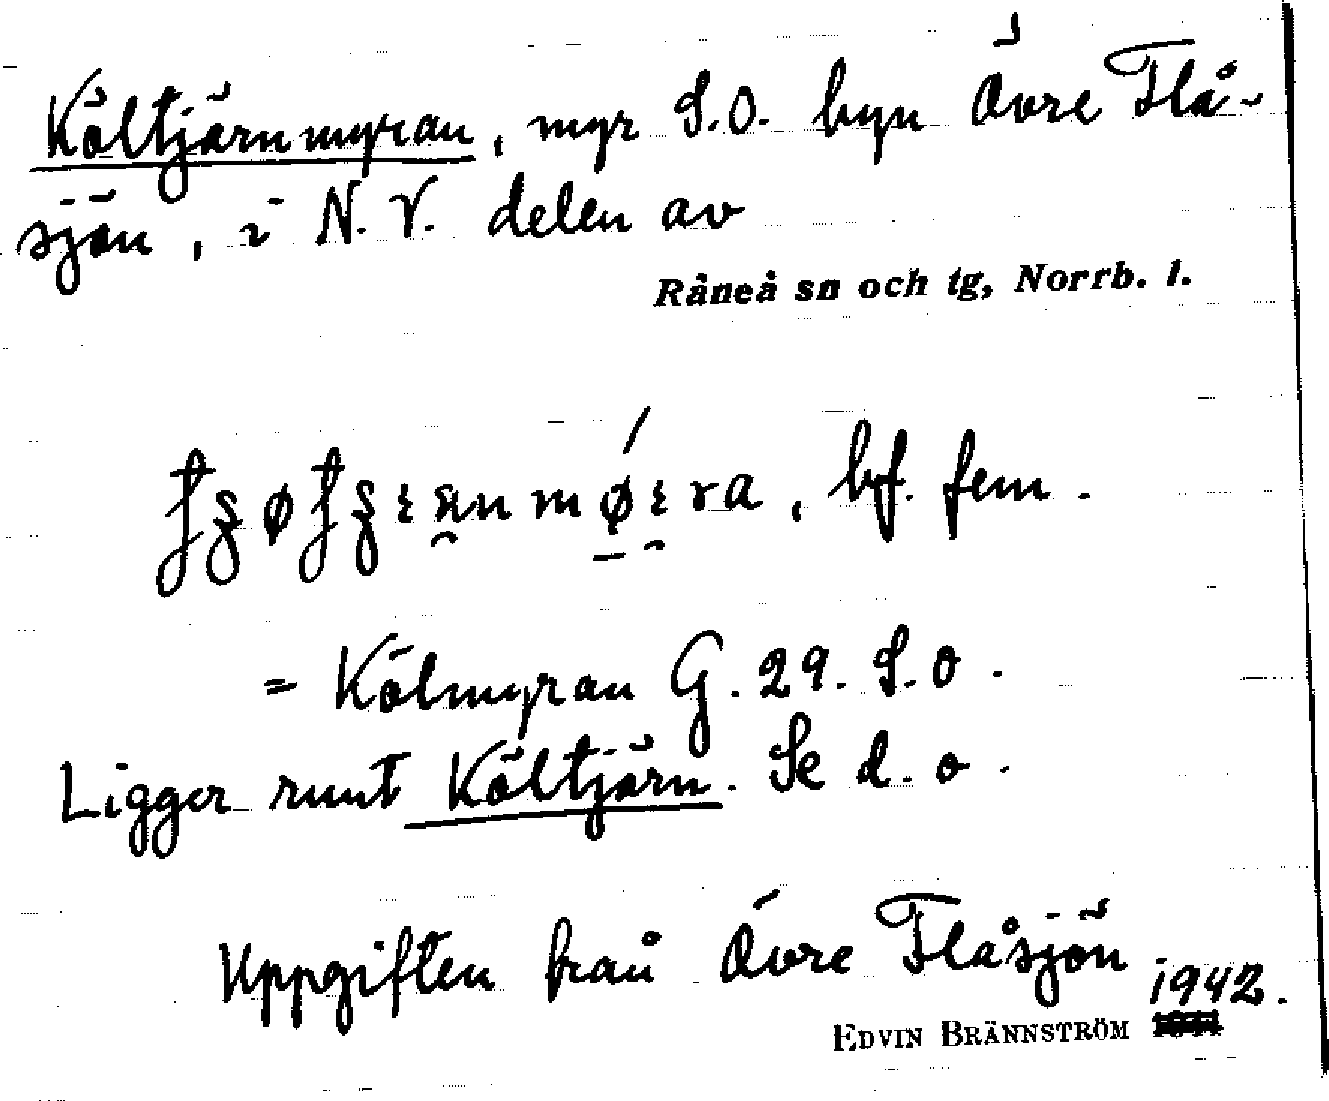 Költjärnmyran, myr S.O. byn Övre Flå-
sjön, i N.V. delen av
Råneå sn och tg, Norrb. l.
bf. fem.
= Kölmyran G. 29. S.O.
Ligger runt Költjärn. Se d. o.
Uppgiften från Övre Flåsjön
1942.
EDVIN BRÄNNSTRÖM